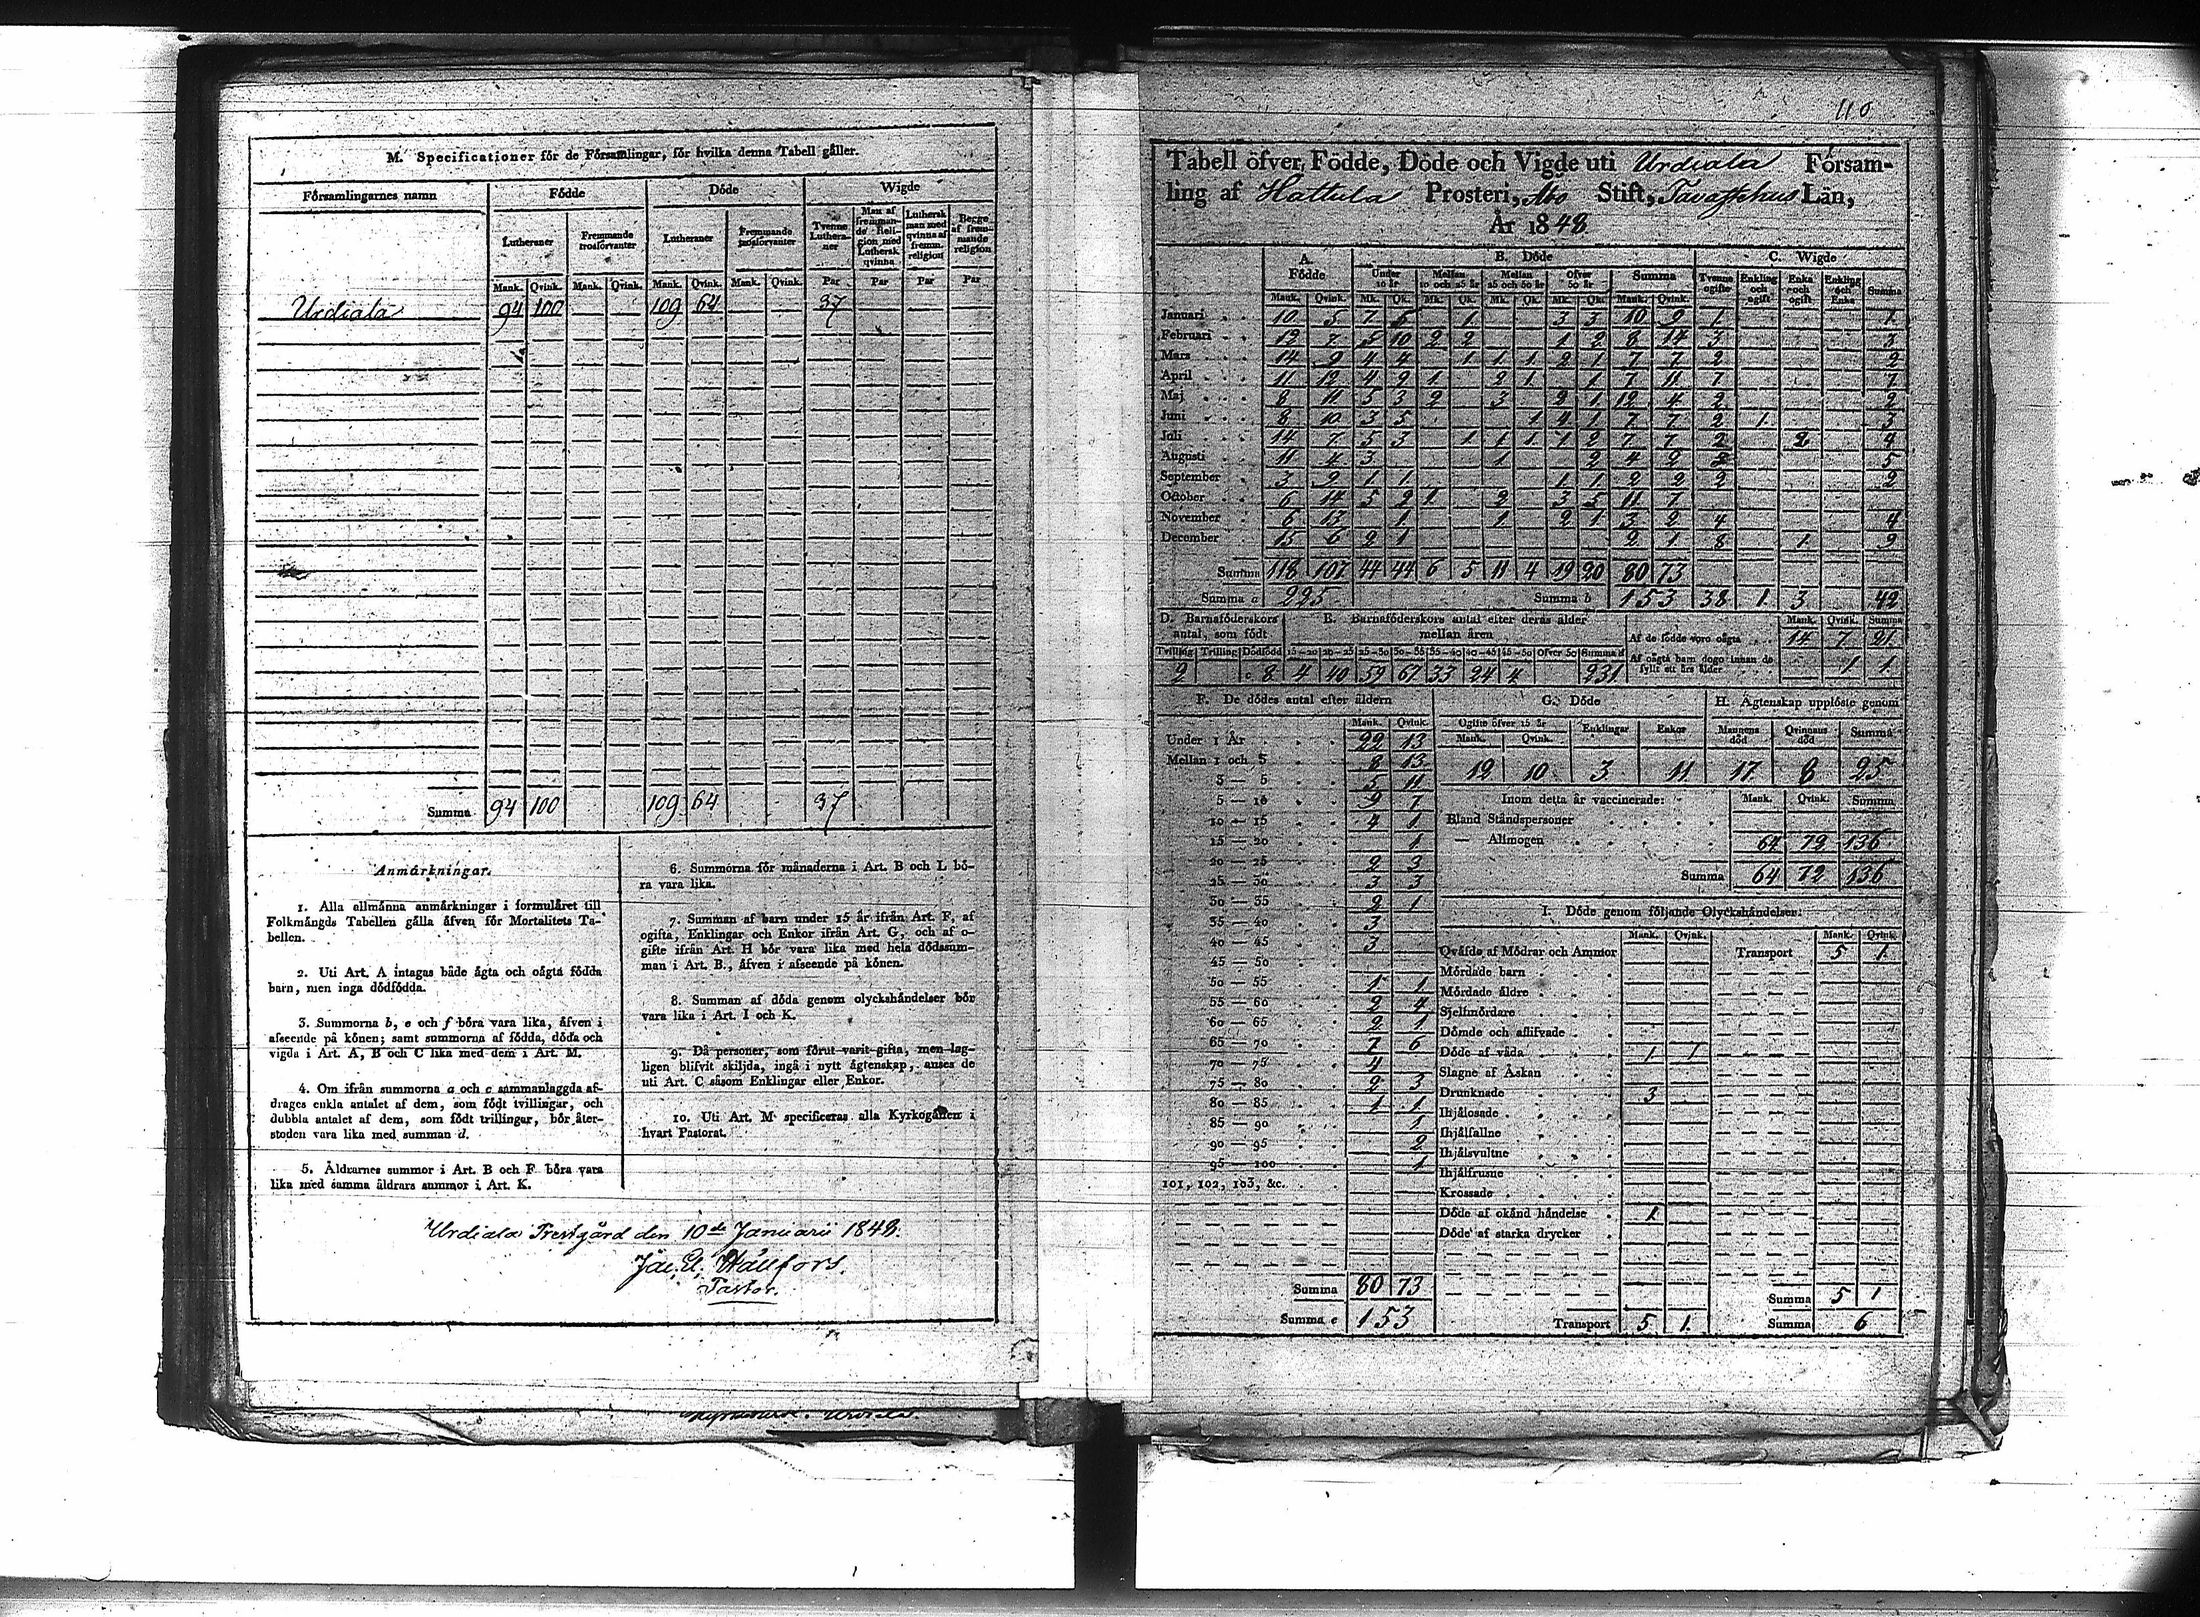 M. Specificationer för de Församlingar, för hvilka denna Tabell gäller.
Församlingarnes namn Födde Döde Wigde
Lutheraner Fremmande trosförvanter Lutheraner Fremmande trosförvanter Tvenne Lutheraner Man af fremmande Religion med Luthersk qvinna Luthersk man med qvinna af fremm. religion Begge af fremmande religion
Mank. Qvink. Mank. Qvink. Mank. Qvink. Mank. Qvink. Par Par Par Par
Urdiala 94 100 109 64 37
Summa 94 100 109 64 37
Anmärkningar.
1. Alla allmänna anmärkningar i formuläret till
Folkmängds Tabellen gälla äfven för Mortalitets Ta-
bellen.
2. Uti Art. A intagas både ägta och oägta födda
barn, men inga dödfödda.
3. Summorna b, e och f böra vara lika, äfven i
afseende på könen; samt summorna af födda, döda och
vigda i Art. A, B och C lika med dem i Art. M.
4. Om ifrån summorna a och c sammanlaggda af-
drages enkla antalet af dem, som födt tvillingar, och
dubbla antalet af dem, som födt trillingar, bör åter-
stoden vara lika med summan d.
5. Åldrarnes summor i Art. B och F böra vara
lika med samma åldrars summor i Art. K.
6. Summorna för månaderna i Art. B och L bö-
ra vara lika.
7. Summan af barn under 15 år ifrån Art. F, af
ogifta, Enklingar och Enkor ifrån Art. G, och af o-
gifte ifrån Art. H bör vara lika med hela dödssum-
man i Art. B., äfven i afseende på könen.
8. Summan af döda genom olyckshändelser bör
vara lika i Art. I och K.
9. Då personer, som förut varit gifta, men lag-
ligen blifvit skiljda, ingå i nytt ägtenskap, anses de
uti Art. C såsom Enklingar eller Enkor.
10. Uti Art. M specificeras alla Kyrkogällen i
hvart Pastorat.
Urdiala Prestgård den 10de Januarii 1848.
Pastor.
110
Tabell öfver Födde, Döde och Vigde uti Urdiala Försam-
ling af Hattula Prosteri, Åbo Stift, Tavastehus Län,
År 1848
A. Födde B. Döde C. Wigde
Under 10 år Mellan 10 och 25 år Mellan 25 och 50 år Öfver 50 år Summa Tvenne ogifte Enkling och ogift Enka och ogift Enkling och Enka Summa
Mank. Qvink. Mk. Qk. Mk. Qk. Mk. Qk. Mk. Qk. Mank. Qvink.
Januari 10 5 7 5 1 3 3 10 9 1 1
Februari 12 7 5 10 2 2 1 2 8 14 3 3
Mars 14 9 4 4 1 1 1 2 1 7 7 2 2
April 11 12 4 9 1 2 1 1 7 11 7 7
Maj 8 11 5 3 2 3 2 1 12 4 2 2
Juni 8 10 3 5 1 4 1 7 7 2 1 3
Juli 14 7 5 3 1 1 1 1 2 7 7 2 2 4
Augusti 11 4 3 1 2 4 2 5
September 3 9 1 1 1 1 2 2 2 2
October 6 14 5 2 1 2 3 5 11 7
November 6 13 1 1 2 1 3 2 4 4
December 15 6 2 1 2 1 8 1 9
Summa 118 107 44 44 6 5 11 4 19 20 80 73
Summa a 225 Summa b 153 38 1 3 42
D. Barnaföderskors antal, som födt
Tvilling Trilling Dödfödd
2 8
E. Barnaföderskors antal efter deras ålder mellan åren
15—20 20—25 25—30 30—35 35—40 40—45 45—50 Öfver 50 Summa d
4 40 59 67 33 24 4 231
Mank. Qvink. Summa
Af de födde voro oägta 14 7 21
Af oägta barn dogo innan de fyllt ett års ålder 1 1
F. De dödes antal efter åldern
Mank. Qvink.
Under 1 År 22 13
Mellan 1 och 3 8 13
3 — 5 5 11
5 — 10 9 7
10 — 15 4 1
15 — 20 1
20 — 25 2 3
25 — 30 3 3
30 — 35 2 1
35 — 40 3
40 — 45 3
45 — 50
50 — 55 1 1
55 — 60 2 4
60 — 65 2 1
65 — 70 7 6
70 — 75 4
75 — 80 2 3
80 — 85 1 1
85 — 90 1
90 — 95 2
95 — 100 1
101, 102, 103, &c.
Summa 80 73
Summa e 153
G. Döde
Ogifte öfver 15 år Enklingar Enkor
Mank. Qvink.
12 10 3 11
H. Ägtenskap upplöste genom
Mannens död Qvinnans död Summa
17 8 25
Inom detta år vaccinerade: Mank. Qvink. Summa
Bland Ståndspersoner
— Allmogen 64 72 136
Summa 64 72 136
I. Döde genom följande Olyckshändelser:
Mank. Qvink. Mank. Qvink.
Qväfde af Mödrar och Ammor Transport 5 1
Mördade barn
Mördade äldre
Sjelfmördare
Dömde och aflifvade
Döde af våda 1 1
Slagne af Åskan
Drunknade 3
Ihjälosade
Ihjälfallne
Ihjälsvultne
Ihjälfrusne
Krossade
Döde af okänd händelse 1
Döde af starka drycker
Summa 5 1
Transport 5 1 Summa 6